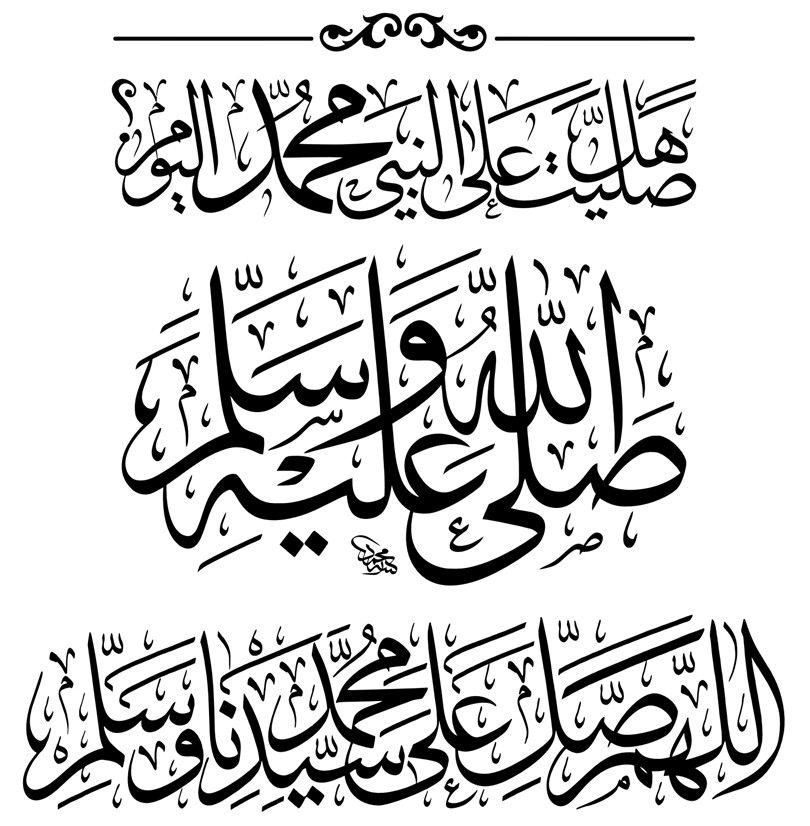 هل صليت على النبي محمد اليوم؟
صلى الله عليه وسلم
اللهم صل على سيدنا محمد وسلم